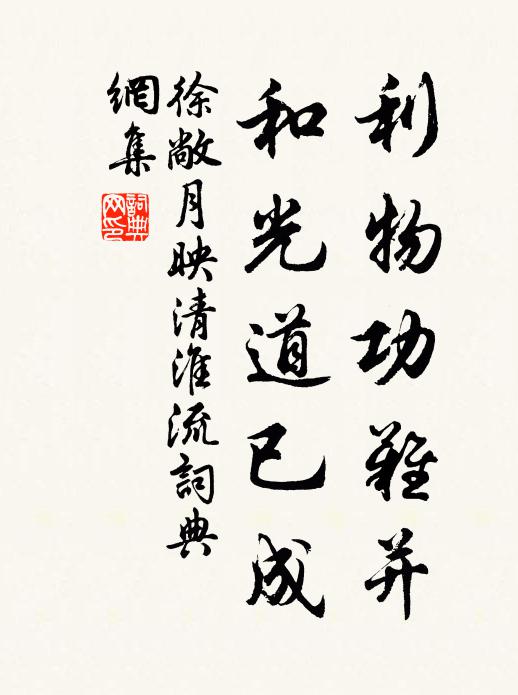 利物功難并
和光道已成
徐敞月映清淮流詞典
網集
詞典
网印